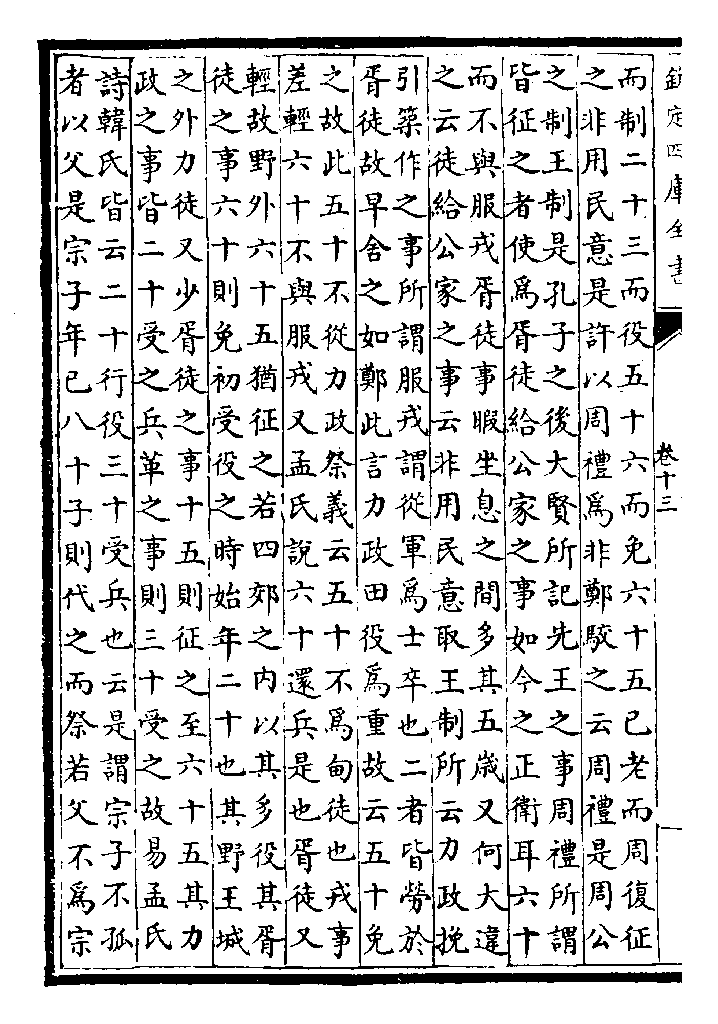 欽定四庫全書
卷十三
而制二十三而役五十六而免六十五已老而周復征
之非用民意是許以周禮爲非鄭駮之云周禮是周公
之制王制是孔子之後大賢所記先王之事周禮所謂
皆征之者使爲胥徒給公家之事如今之正衛耳六十
而不與服戎胥徒事暇坐息之間多其五歲又何大違
之云徒給公家之事云非用民意取王制所云力政挽
引築作之事所謂服戎謂從軍爲士卒也二者皆勞於
胥徒故早舍之如鄭此言力政田役爲重故云五十免
之故此五十不從力政祭義云五十不爲甸徒也戎事
差輕六十不與服戎又孟氏說六十還兵是也胥徒又
輕故野外六十五猶征之若四郊之内以其多役其胥
徒之事六十則免初受役之時始年二十也其野王城
之外力徒又少胥徒之事十五則征之至六十五其力
政之事皆二十受之兵革之事則三十受之故易孟氏
詩韓氏皆云二十行役三十受兵也云是謂宗子不孤
者以父是宗子年已八十子則代之而祭若父不爲宗